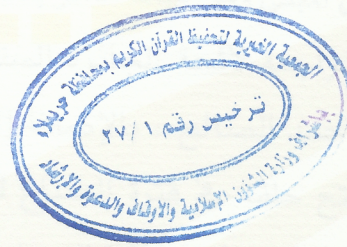 الجمعية الخيرية لتحفيظ القرآن الكريم بمحافظة حريملاء
ترخيص رقم ٢٧/١
بإشراف وزارة الشؤون الإسلامية والأوقاف والدعوة والإرشاد